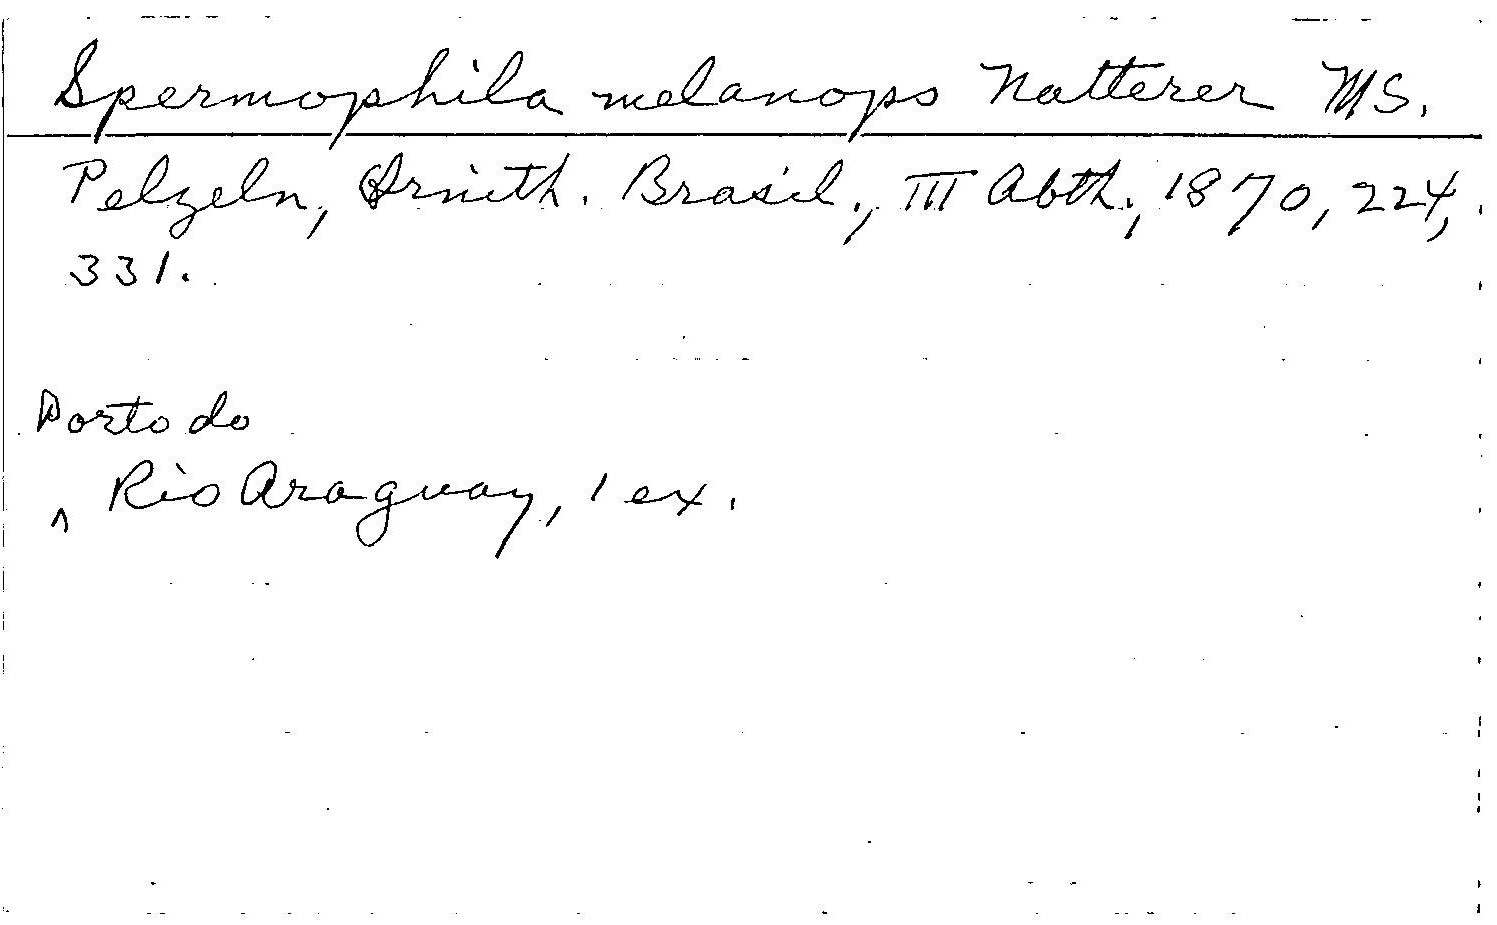 Spermophila melanops Natterer MS.
Pelzeln, Ornith. Brasil., III Abth., 1870, 224,
331.
Porto do
^ Rio Araguay, 1 ex.